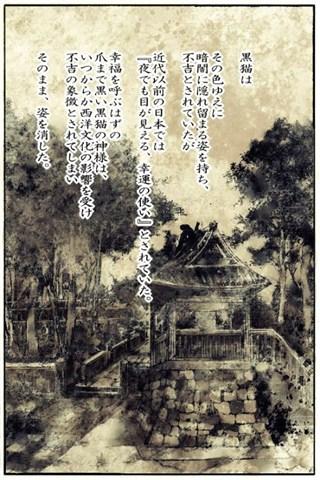 黒猫は
その色ゆえに
暗闇に隠れ留まる姿を持ち、
不吉とされていたが
近代以前の日本では
『夜でも目が見える、幸運の使い』とされていた。
幸福を呼ぶはずの
爪まで黒い黒猫の神様は、
いつからか西洋文化の影響を受け
不吉の象徴とされてしまい
そのまま、姿を消した。